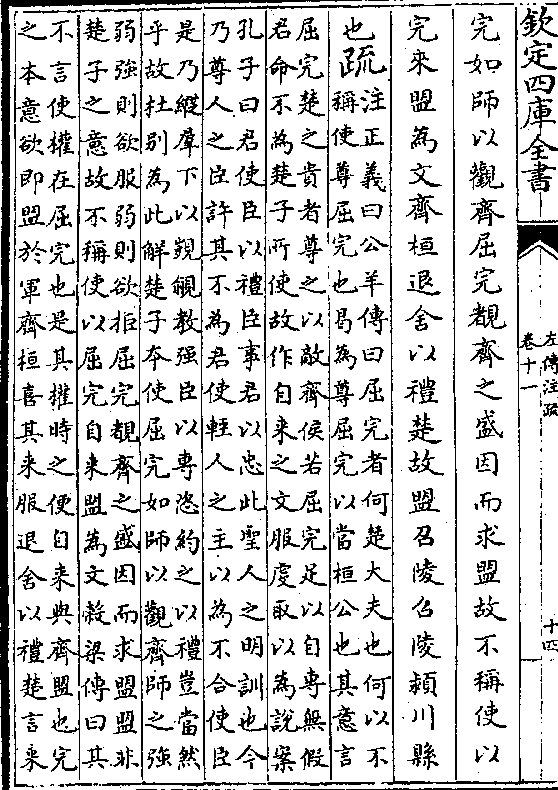 欽定四庫全書
左傳注疏
卷十一
十四
完如師以觀齊屈完覩齊之盛因而求盟故不稱使以
完來盟為文齊桓退舍以禮楚故盟召陵召陵頴川縣
也疏注正義曰公羊傳曰屈完者何楚大夫也何以不
稱使尊屈完也曷為尊屈完以當桓公也其意言
屈完楚之貴者尊之以敵齊侯若屈完足以自專無假
君命不為楚子所使故作自来之文服虔取以為說案
孔子曰君使臣以禮臣事君以忠此聖人之明訓也今
乃尊人之臣許其不為君使輕人之主以為不合使臣
是乃縱羣下以覬覦教强臣以專恣約之以禮豈當然
乎故杜别為此解楚子本使屈完如師以觀齊師之强
弱強則欲服弱則欲拒屈完覩齊之盛因而求盟盟非
楚子之意故不稱使以屈完自来盟為文榖梁傳曰其
不言使權在屈完也是其權時之便自来與齊盟也完
之本意欲即盟於軍齊桓喜其来服退舍以禮楚言来